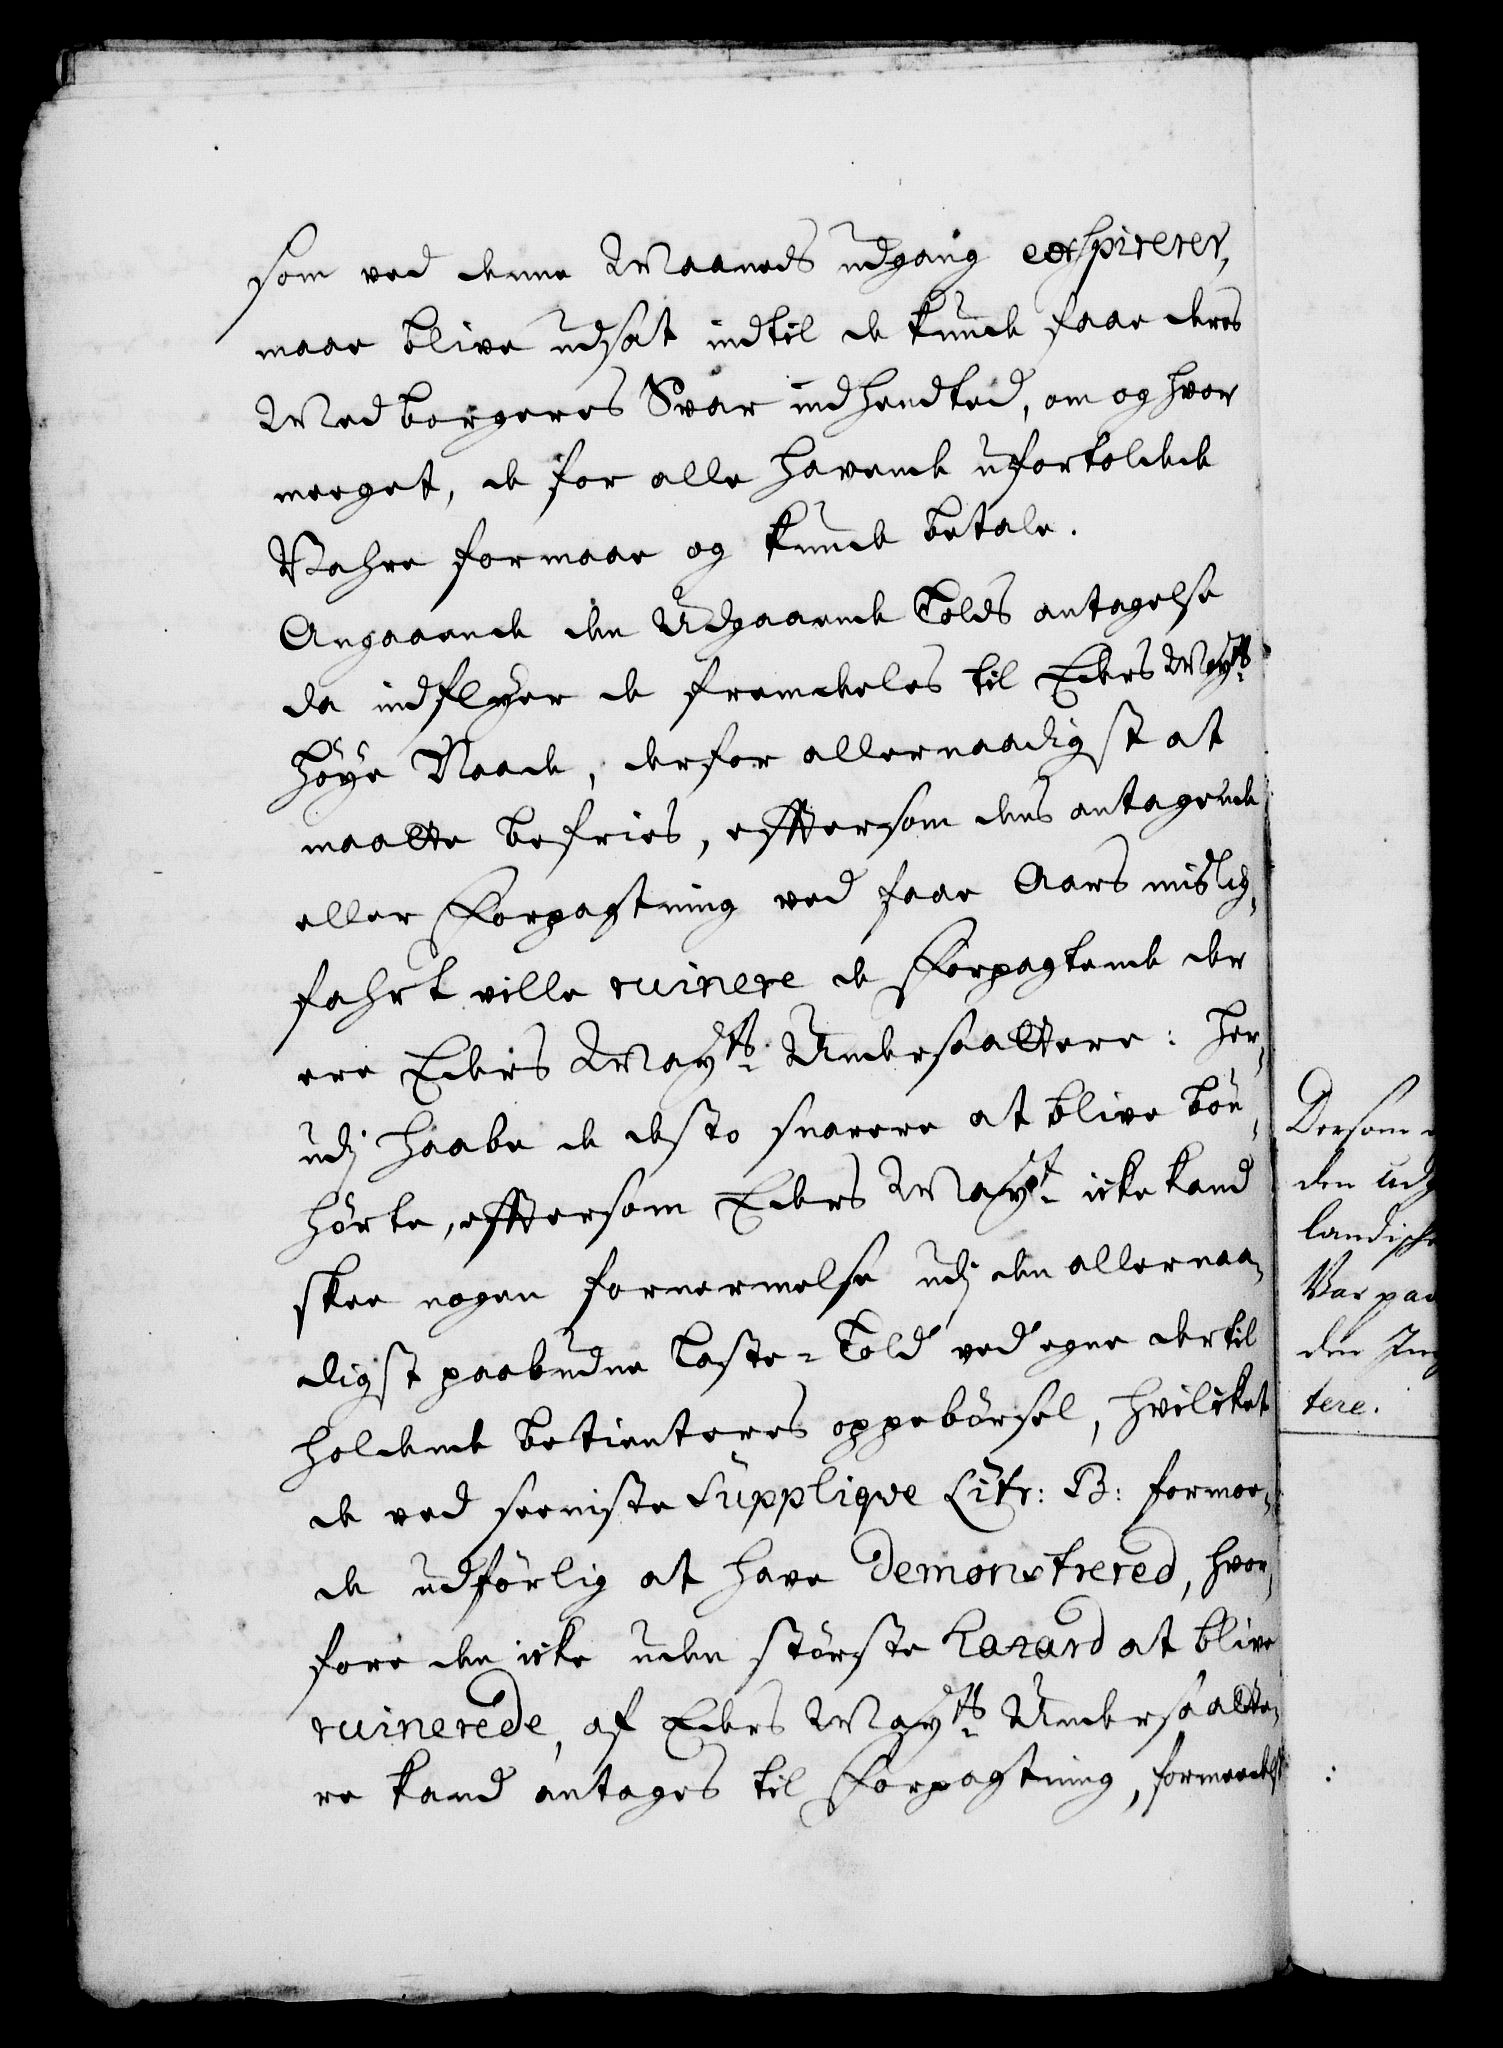 som ved denne Maaneds udgang exspirerer,
maae blive udsat indtil de kunde faae deres
Medborgeres Svar indhendted, om og hvor
meeget, de for alle havende ufortoldede
Vahre formaae og kunde betale.
Angaaende den Udgaaende Tolds antagelse
da indflyer de fremdeles til Eders Mayts
höye Naade, derfor allernaadigst at
maatte befries, effter som dens antagende
eller Forpagtning ved faae Aars mislig,
fahrt ville ruinere de Forpagtende der
ere Eders Mayts Undersaattere: her,
udj haabe de desto snarere at blive bön,
hörte, effter som Eders Mayt icke kand
skee nogen fornermelse udj den allernaa,
digst paabudne Taste-Told ved egne dertil
holdende betienteres oppebörsel, hvilcket
de ved seeniste Supplique Litr: B: formoe,
de udförlig at have demonstrered, hvor,
fore den icke uden störste hazard at blive
ruinerede, af Eders Mayts Undersaatte,
re kand antages til Forpagtning, formedelst
Dersom
den udg
landische
Var paa
den
tere.